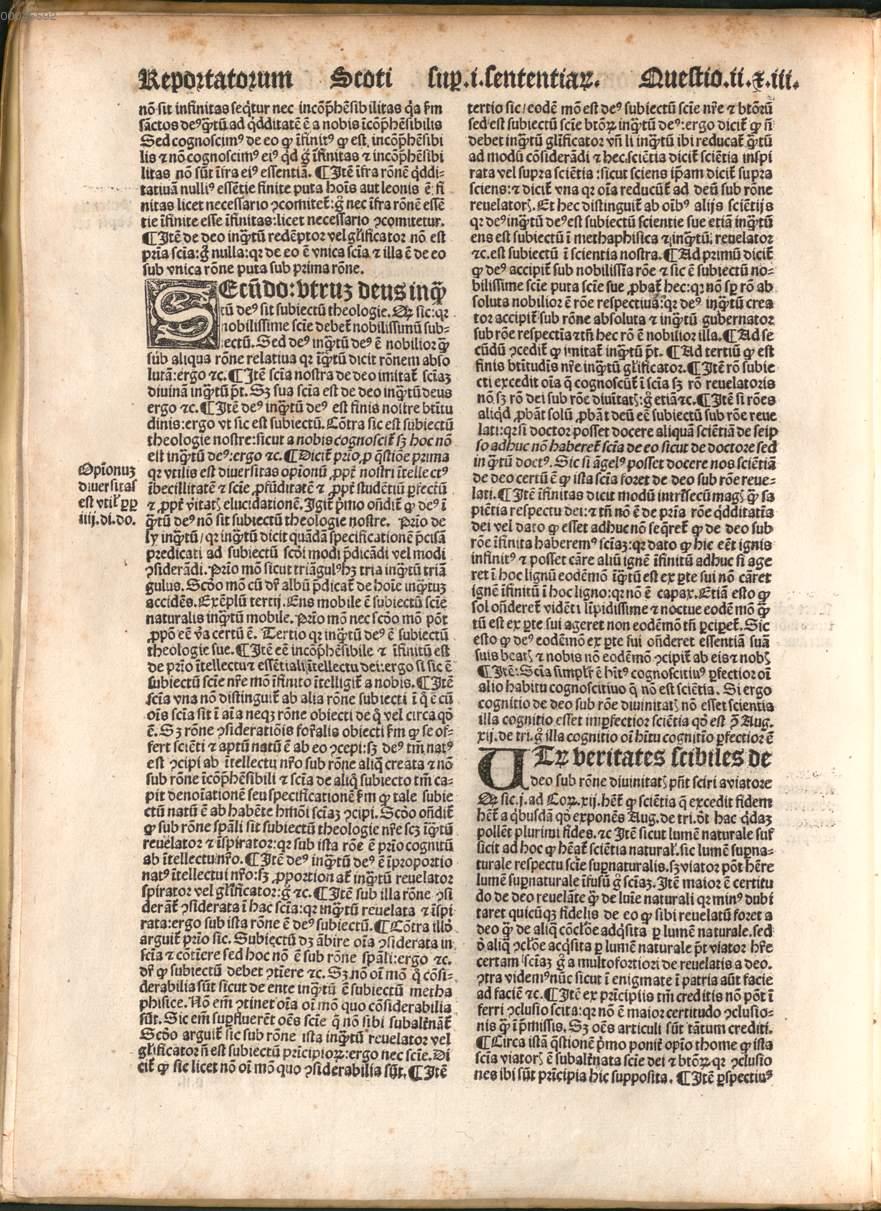 Reportatorum Scoti suꝑ.i.sententiaꝝ. Questio.ii.ꝛ.iii.
nō sit infinitas seq̄tur nec incōp̄hēsibilitas q̄a ẜm
sāctos deꝰ q̄ꝫtū ad q̄dditatē ē a nobis icōp̄hēsibilis
Sed cognoscimꝰ de eo ꝙ īfinitꝰ ꝙ est, incōp̄hēsibi
lis ⁊ nō cognoscimꝰ eiꝰ qd ḡ īfinitas ⁊ incōp̄hēsibi
litas nō sūt īfra eiꝰ essentiā. ¶Itē īfra rōnē q̄ddi-
tatiuā nulliꝰ essētie finite puta hoīs aut leonis ē fi
nitas licet necessario ꝯcomitet̄: ḡ nec īfra rōnē essē
tie īfinite esse īfinitas: licet necessario ꝯcomitetur.
¶Itē de deo inq̄ꝫtū redēptor vel glificator nō est
pria scīa: ḡ nulla: qꝛ de eo ē vnica scīa ⁊ illa ē de eo
sub vnica rōne puta sub prima rōne.
SEcūdo: vtruꝫ deus inq̄ꝫ
tū deꝰ sit subiectū theologie. Qꝫ sic: qꝛ
nobilissime scīe debet̄ nobilissimū sub-
iectū. Sed deꝰ inq̄ꝫtū deꝰ ē nobilior q̄ꝫ
sub aliqua rōne relatiua qꝛ īq̄ꝫtū dicit rōnem abso
lutā: ergo ⁊c. ¶Itē scīa nostra de deo imitat̄ scīaꝫ
diuinā inq̄ꝫtū pt̄. Sꝫ sua scīa est de deo inq̄ꝫtū deus
ergo ⁊c. ¶Itē deꝰ inq̄ꝫtū deꝰ est finis nostre btītu
dinis: ergo vt sic est subiectū. Cōtra sic est subiectū
theologie nostre: sicut a nobis cognoscit̄ sꝫ hoc nō
est inq̄ꝫtū deꝰ: ergo ⁊c. ¶Dicit̄ prīo, ꝓ q̄stiōe prima
qꝛ vtilis est diuersitas opionū, ꝓpt̄ nostri ītellectꝰ
ībecillitatē ⁊ scīe, ꝓfūditatē ⁊ ꝓpt̄ studētiū ꝑfectū
⁊ ꝓpt̄ vītatꝭ elucidationē. Igit̄ p̄mo oñdit̄ ꝙ deꝰ ī
q̄ꝫtū deꝰ nō sit subiectū theologie nostre. Prīo de
ly inq̄ꝫtū/ qꝛ inq̄ꝫtū dicit quādā specificationē p̄cisā
predicati ad subiectū scd̄i modi p̄dicādi vel modi
ꝯsiderādi. Prīo mō sicut triāgulꝰ hꝫ tria inq̄ꝫtū triā
gulus. Scd̄o mō cū dr̄ albū p̄dicat̄ de hoīe inq̄ꝫtuꝫ
accidēs. Exēplū tertij. Ens mobile ē subiectū scīe
naturalis inq̄ꝫtū mobile. Prīo mō nec scd̄o mō pōt
ꝓpō eē v̄a certū ē. Tertio qꝛ inq̄ꝫtū deꝰ ē subiectū
theologie sue. ¶Itē eē incōp̄hēsibile ⁊ īfinitū est
de prīo ītellectu ⁊ essētiali ītellectu dei: ergo si sic ē
subiectū scīe nr̄e mō īfinito ītelligit̄ a nobis. ¶Itē
scīa vna nō distinguit̄ ab alia rōne subiecti ī q̄ ē cū
oīs scīa sit ī aīa neqꝫ rōne obiecti de q̄ vel circa qd̄
ē. Sꝫ rōne ꝯsiderationīs for̄alis obiecti ẜm ꝙ se of-
fert sciēti ⁊ aptū natū ē ab eo ꝯcepi: sꝫ deꝰ tm̄ natꝰ
est ꝯcipi ab ītellectu nr̄o sub rōne aliq̄ creata ⁊ nō
sub rōne īcōp̄hēsibili ⁊ scīa de aliq̄ subiecto tm̄ ca-
pit denoīationē seu specificationē ẜm ꝙ tale subie
ctū natū ē ab habēte hmōi scīaꝫ ꝯcipi. Scd̄o oñdit̄
ꝙ sub rōne spāli sit subiectū theologie nr̄e scꝫ īq̄ꝫtū
reuelator ⁊ īspirator: qꝛ sub ista rōe ē prīo cognitū
ab ītellectu nr̄o. ¶Itē deꝰ inq̄ꝫtū deꝰ ē iproportio
natꝰ ītellectui nr̄o: sꝫ, ꝓportion at̄ inq̄ꝫtū reuelator
spirator vel glīficator: ḡ ⁊c. ¶Itē sub illa rōne ꝯsi
derāt̄ ꝯsiderata ī hac scīa: qꝛ inq̄ꝫtū reuelata ⁊ īspi
rata: ergo sub ista rōne ē deꝰ subiectū. ¶Cōtra illd̄
arguit̄ prīo sic. Subiectū dꝫ ābire oīa ꝯsiderata in
scīa ⁊ cōtīere sed hoc nō ē sub rōne spāli: ergo ⁊c.
dr̄ ꝙ subiectū debet ꝯtīere ⁊c. Sꝫ nō oī mō q̄ cōsi-
derabilia sūt sicut de ente inq̄ꝫtū ē subiectū metha
phisice. Nō em̄ ꝯtinet oīa oī mō quo cōsiderabilia
sūt. Sic em̄ suꝑfluerēt oēs scīe q̄ nō sibi subalt̄nāt̄
Scd̄o arguit̄ sic sub rōne ista inq̄ꝫtū reuelator vel
glīficator ñ est subiectū prīcipioꝝ: ergo nec scīe. Di
cit̄ ꝙ sic licet nō oī mō quo ꝯsiderabilia sūt. ¶Itē
Opīonuꝫ
diuersitas
est vtil̓ ꝓꝑ
iiij. di. do.
tertio sic/ eodē mō est deꝰ subiectū scīe nr̄e ⁊ btōrū
sed est subiectū scīe btōꝝ inq̄ꝫtū deꝰ: ergo dicit̄ ꝙ ñ
debet inq̄ꝫtū glīficator vñ li inq̄ꝫtū ibi reducat̄ q̄ꝫtū
ad modū cōsiderādi ⁊ hec. sciētia dicit̄ sciētia inspi
rata vel supra sciētia: sicut sciens ip̄am dicit̄ supra
sciens: ⁊ dicit̄ vna qꝛ oīa reducūt̄ ad deū sub rōne
reuelatoꝝ. Et hec distinguit̄ ab oībꝰ alijs sciētijs
qꝛ deꝰ inq̄ꝫtū deꝰ est subiectū scientie sue etiā inq̄ꝫtū
ens est subiectū ī methaphisica ⁊ inq̄ꝫtū, reuelator
⁊c. est subiectū ī scientia nostra. ¶Ad primū dicit̄
ꝙ deꝰ accipit̄ sub nobilissīa rōe ⁊ sic ē subiectū no-
bilissime scīe puta scīe sue, ꝓbat̄ hec: qꝛ nō sp̄ rō ab
soluta nobilior ē rōe respectiua: qꝛ deꝰ inq̄ꝫtū crea
tor accipit̄ sub rōne absoluta ⁊ inq̄ꝫtū gubernator
sub rōne respectīa ⁊ tn̄ hec rō ē nobilior illa. ¶Ad se
cūdū ꝯcedit̄ ꝙ imitat̄ inq̄ꝫtū pt̄. ¶Ad tertiū ꝙ est
finis btītudīs nr̄e inq̄ꝫtū glīficator. ¶Itē rō subie
cti excedit oīa q̄ cognoscūt̄ ī scīa sꝫ rō reuelatoris
nō sꝫ rō dei sub rōe diuītatꝭ: ḡ etiā ⁊c. ¶Itē si rōes
aliqd̄, ꝓbāt solū, ꝓbāt deū eē subiectū sub rōe reue
lati: qꝛ si doctor posset docere aliquā sciētiā de seip
so adhuc nō haberet̄ scīa de eo sicut de doctore sed
inq̄ꝫtū doctꝰ. Sic si āgelꝰ posset docere nos sciētiā
de deo certū ē ꝙ ista scīa foret de deo sub rōe reue-
lati. ¶Itē īfinitas dicit modū intrīsecū magꝭ q̄ꝫ sa
piētia respectu dei: ⁊ tn̄ nō ē de prīa rōe q̄dditatīa
dei vel dato ꝙ esset adhuc nō seq̄ret̄ ꝙ de deo sub
rōe īfinita haberemꝰ scīaꝫ: qꝛ dato ꝙ hic eēt ignis
infinitꝰ ⁊ posset cāre aliū ignē īfinitū adhuc si age
ret ī hoc lignū eodēmō īq̄ꝫtū est ex ꝑte sui nō cāret
ignē īfinitū ī hoc ligno: qꝛ nō ē capax. Etiā esto ꝙ
sol oñderet̄ vidēti līpidissime ⁊ noctue eodē mō q̄ꝫ
tū est ex ꝑte sui ageret non eodēmō tn̄ ꝑciperet̄. Sic
esto ꝙ deꝰ eodēmō ex ꝑte sui oñderet essentiā suā
suis beatꝭ ⁊ nobis nō eodēmō ꝯcipit̄ ab eis ⁊ nobꝭ
¶Itē: Scīa simplr̄ ē hītꝰ cognoscitiuꝰ ꝑfectior oī
alio habitu cognoscitiuo q̄ nō est sciētia. Si ergo
cognitio de deo sub rōe diuinītatꝭ nō esset scientia
illa cognitio esset imꝑfectior sciētia qd̄ est ꝯ̄ Aug.
xij. de tri. ḡ illa cognitio oī hītu cognitīo ꝑfectior ē
UTꝛ veritates scibiles de
deo sub rōne diuinitatꝭ pn̄t sciri a viatore
Qꝫ sic. j. ad Coꝝ. xij. hēt̄ ꝙ sciētia q̄ excedit fidem
hēt̄ a q̄busdā qd̄ exponēs Aug. de tri. d̄t hac q̄daꝫ
pollēt plurimi fides. ⁊c Itē sicut lumē naturale suf
ficit ad hoc ꝙ hēat̄ sciētia natural̓. sic lumē suꝑna-
turale respectu scīe suꝑnaturalis. sꝫ viator pōt hēre
lumē suꝑnaturale īfusū ḡ scīaꝫ. Itē maior ē certitu
do de deo reuelāte q̄ꝫ de luīe naturali qꝛ minꝰ dubi
taret quicūqꝫ fidelis de eo ꝙ sibi reuelatū foret a
deo q̄ꝫ de aliq̄ cōclōe adq̄sita ꝑ lumē naturale. sed
d̄ aliq̄ ꝯclōe acq̄sita ꝑ lumē naturale pt̄ viator hr̄e
certam scīaꝫ ḡ a multo fortiori de reuelatis a deo.
ꝯtra videmꝰ nūc sicut ī enigmate ī patria aūt facie
ad faciē ⁊c. ¶Itē ex prīcipiis tm̄ creditis nō pōt ī
ferri ꝯclusio scita: qꝛ nō ē maior certitudo ꝯclusio-
nis q̄ꝫ ī p̄missis. Sꝫ oēs articuli sūt tātum crediti.
¶Circa istā q̄stionē p̄mo ponit̄ opīo thome ꝙ ista
scīa viatoꝝ ē subalt̄nata scīe dei ⁊ btōꝝ qꝛ ꝯclusio
nes ibi sūt prīcipia hic supposita. ¶Itē ꝑspectiuꝰ